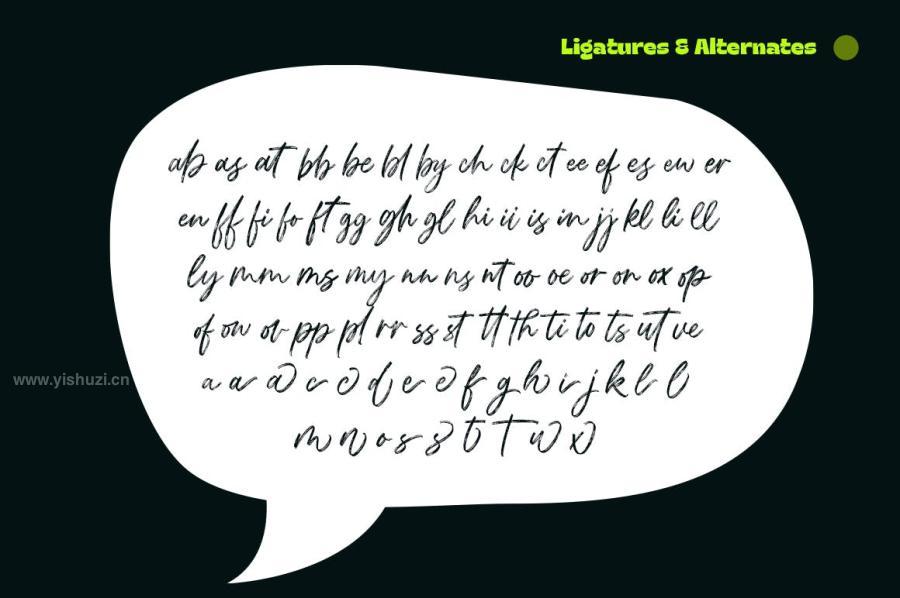 Ligatures & Alternates
ab as at bb be bl by ch ck ct ee ef es ew er
en ff fi fo ft gg gh gl hi ii is in jj kl li ll
ly mm ms my nn ns nt oo oe or on ox op
of ow ov pp pl rr ss st tt th ti to ts ut ve
www.yishuzi.cn
a a a c c d e e f g h i j k l l
m n o s s t t w x